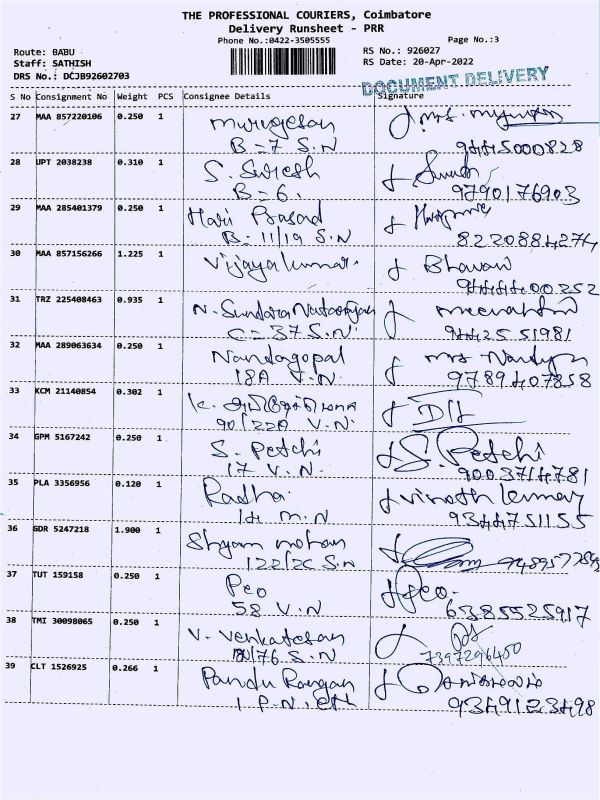 THE PROFESSIONAL COURIERS, Coimbatore
Delivery Runsheet - PRR
Phone No.:0422-3505555
Page No.:3
Route: BABU
RS No.: 926027
Staff: SATHISH
RS Date: 20-Apr-2022
DRS No.: DCJB92602703
DOCUMENT DELIVERY
S No Consignment No Weight PCS Consignee Details Signature
27 MAA 857220106 0.250 1 Murugesan
B=7 S.N 9445000828
28 UPT 2038238 0.310 1 S. Suresh
B=6. 9790176903
29 MAA 285401379 0.250 1 Hari Prasad
B=11/19 S.N 8220884274
30 MAA 857156266 1.225 1 Vijayakumar. Bhavani
9444400252
31 TRZ 225408463 0.935 1 N. Sundara Natarajan
C=37 S.N 9442551981
32 MAA 289063634 0.250 1 Nandagopal
18A V.N. 9789407858
33 KCM 21140854 0.302 1 K.
90/22A V.N.
34 GPM 5167242 0.250 1 S. Petchi S. Petchi
17 V.N. 9003714781
35 PLA 3356956 0.120 1 Radha Vinoth kumar
14 M.N 9344751155
36 GDR 5247218 1.900 1 Shyam mohan
122/2C S.N
37 TUT 159158 0.250 1 Peo Peo.
58 V.N 6385525917
38 TMI 30098065 0.250 1 V. Venkatesan
/76 S.N 7397296450
39 CLT 1526925 0.266 1 Pandu Rangan
1 P.N. 9349123498